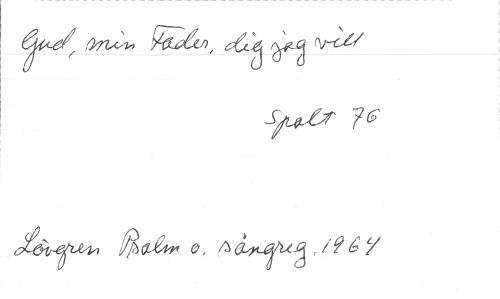 Gud, min Fader, dig jag vill
Spalt 76
Lövgren Psalm o. sångreg. 1964